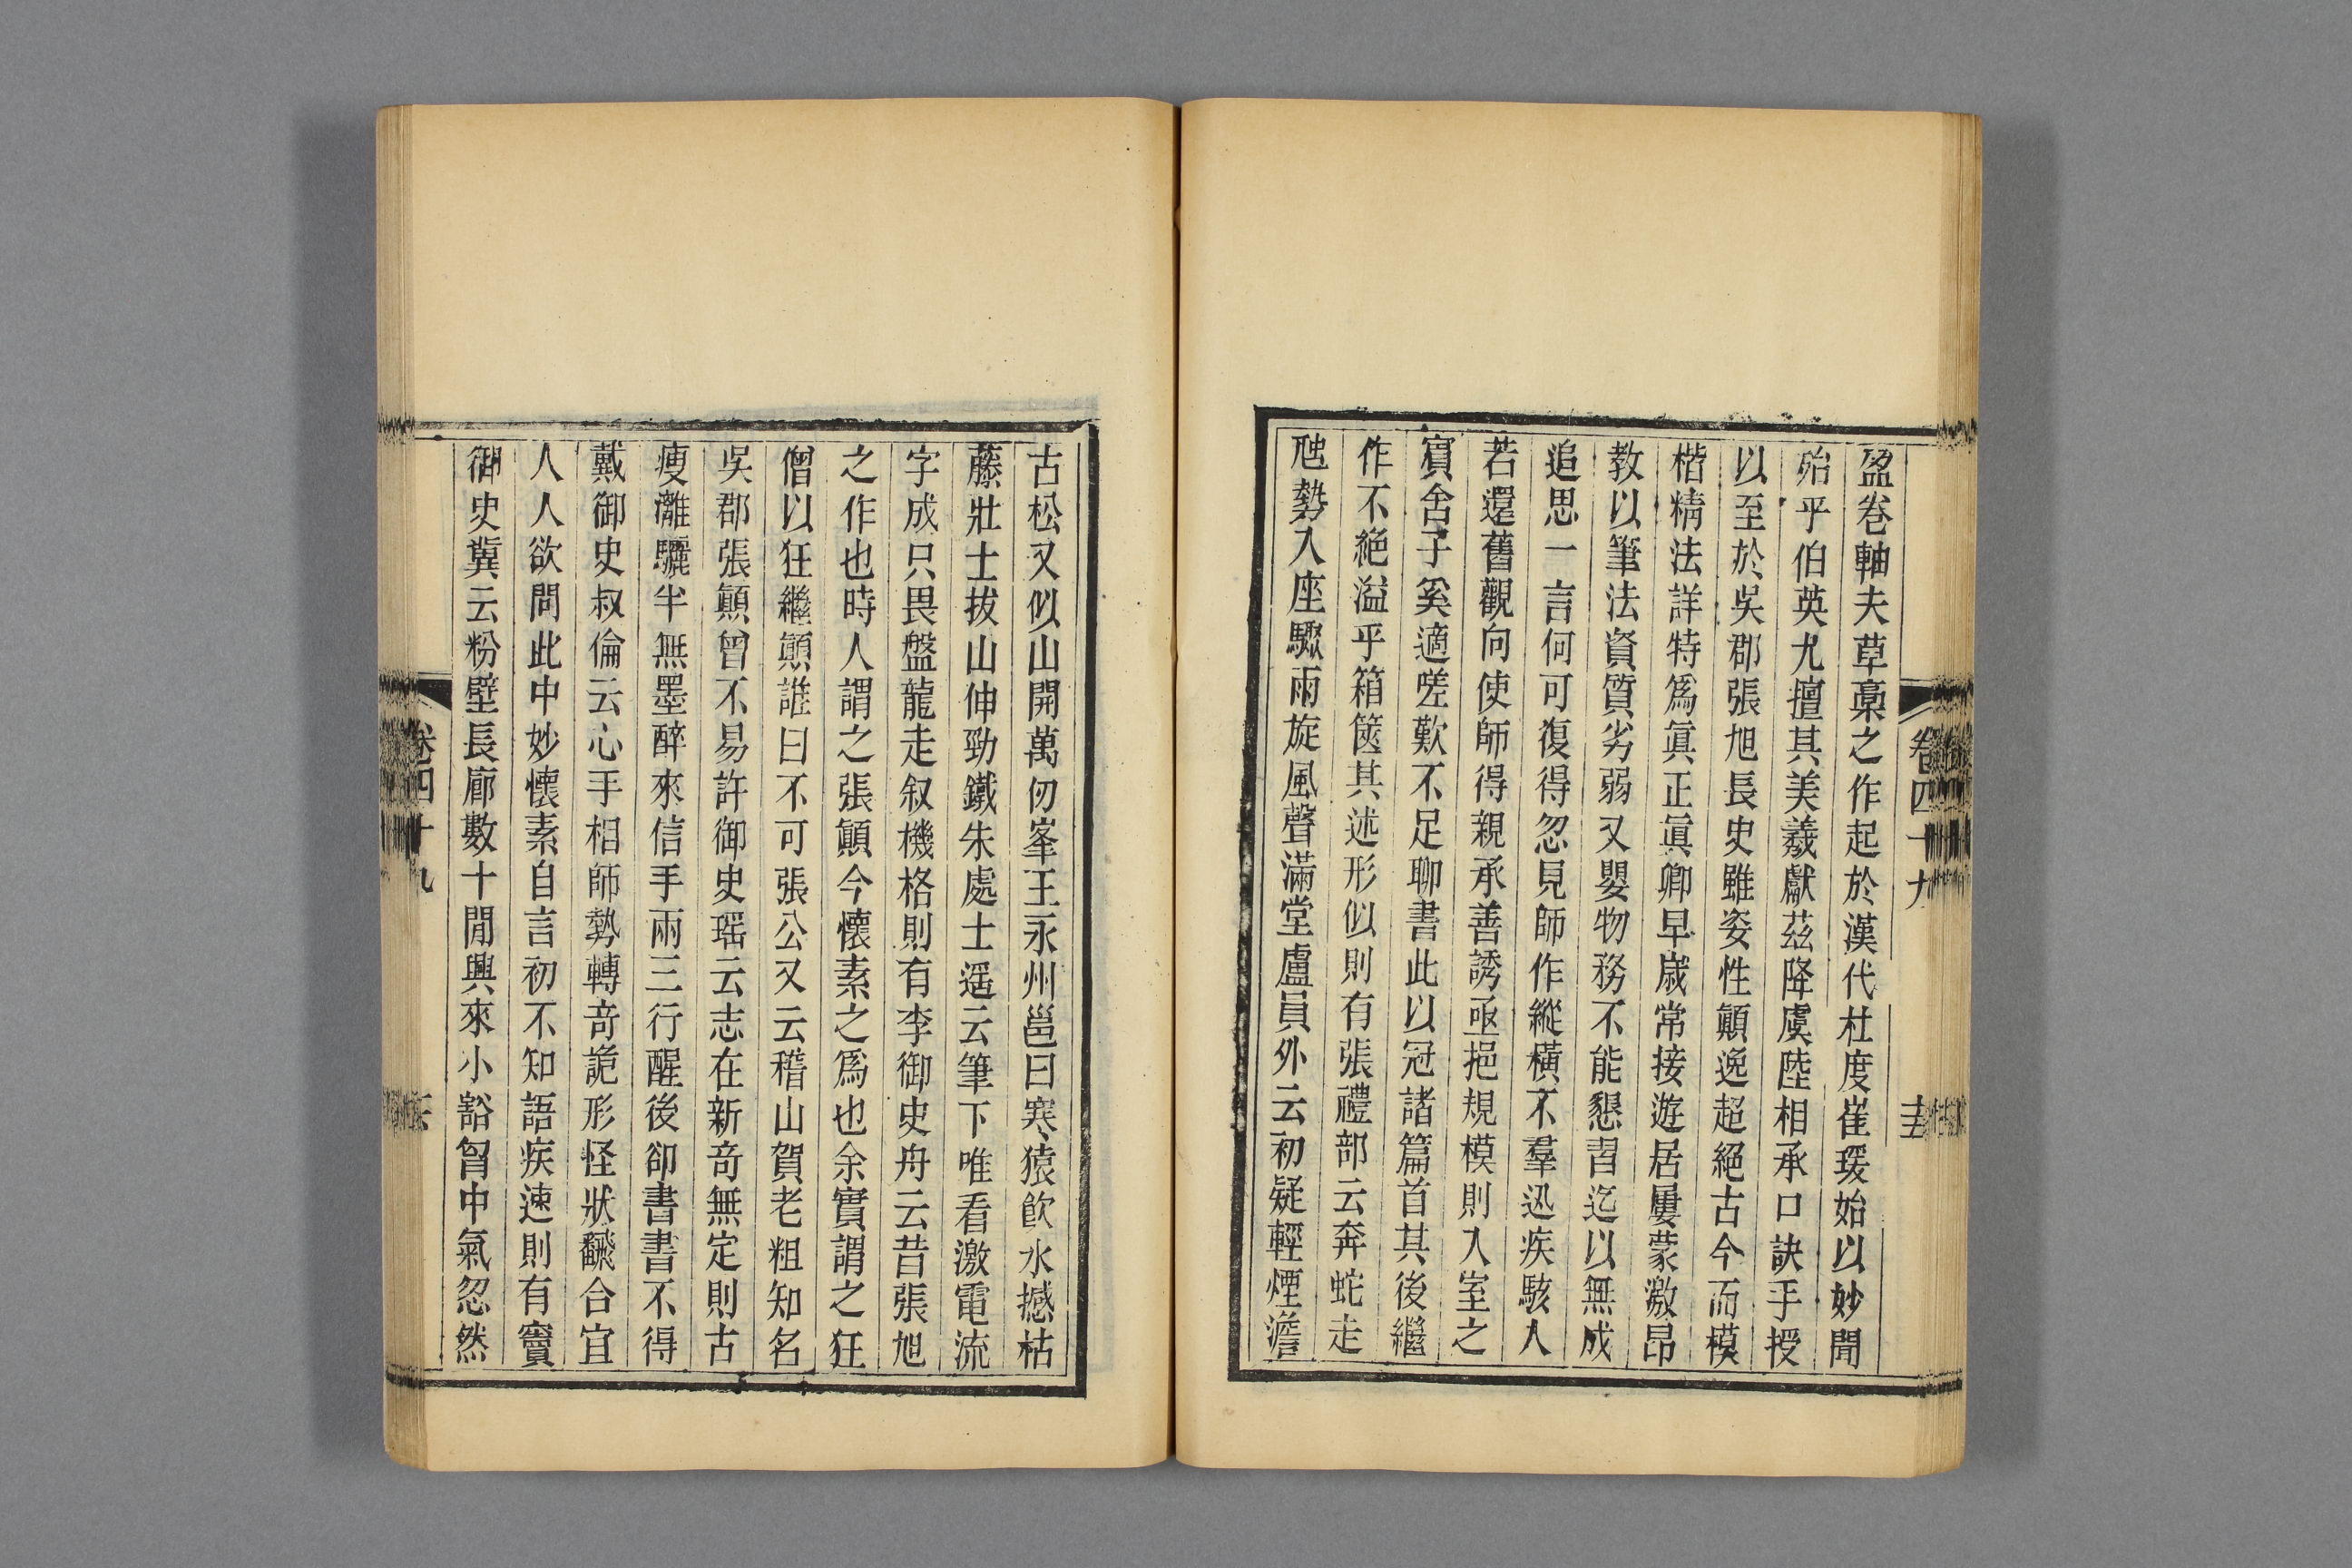 盈卷軸夫草藁之作起於漢代杜度崔瑗始以妙聞
殆乎伯英尤擅其美羲獻茲降虞陸相承口訣手授
以至於吳郡張旭長史雖姿性顛逸超絕古今而模
楷精法詳特為眞正眞卿早歲常接遊居屢蒙激昂
教以筆法資質劣弱又嬰物務不能懇習迄以無成
追思一言何可復得忽見師作縱橫不羣迅疾駭人
若還舊觀向使師得親承善誘亟挹規模則入室之
賓舍子奚適嗟歎不足聊書此以冠諸篇首其後繼
作不絕溢乎箱篋其述形似則有張禮部云奔蛇走
虺勢入座驟雨旋風聲滿堂盧員外云初疑輕煙澹
古松又似山開萬仞峯王永州邕曰寒猿飲水撼枯
藤壯士拔山伸勁鐵朱處士遥云筆下唯看激電流
字成只畏盤龍走叙機格則有李御史舟云昔張旭
之作也時人謂之張顛今懷素之為也余實謂之狂
僧以狂繼顛誰曰不可張公又云稽山賀老粗知名
吳郡張顛曾不易許御史瑶云志在新奇無定則古
瘦灕驪半無墨醉來信手兩三行醒後卻書書不得
戴御史叔倫云心手相師勢轉奇詭形怪狀翻合宜
人人欲問此中妙懷素自言初不知語疾速則有竇
御史冀云粉壁長廊數十間興來小豁胷中氣忽然
卷四十九
卷四十九